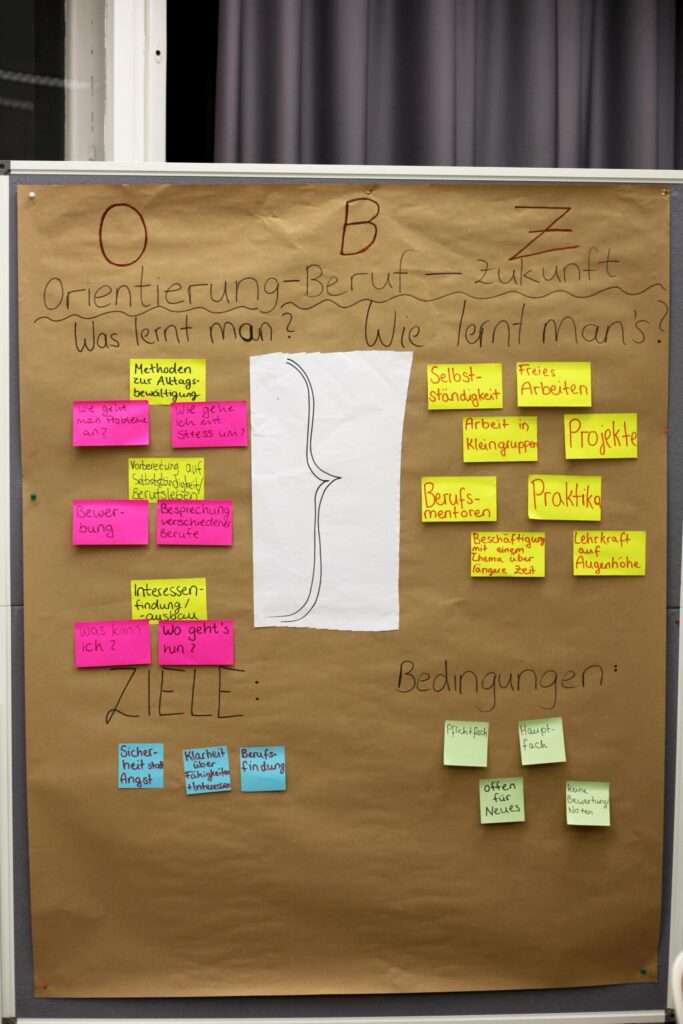 O B Z
Orientierung-Beruf – Zukunft
Was lernt man?
Methoden
zur Alltags-
bewältigung
Wie geht
man Probleme
an?
Wie gehe
ich mit
Stress um?
Vorbereitung auf
Selbstständigkeit/
Berufsleben
Bewer-
bung
Besprechung
verschiedener
Berufe
Interessen-
findung/
-ausbau
Was kann
ich?
Wo geht's
hin?
Wie lernt man's?
Selbst-
ständigkeit
Freies
Arbeiten
Arbeit in
Kleingruppen
Projekte
Berufs-
mentoren
Praktika
Beschäftigung
mit einem
Thema über
längere Zeit
Lehrkraft
auf
Augenhöhe
ZIELE:
Sicher-
heit statt
Angst
Klarheit
über
Fähigkeiten
+Interessen
Berufs-
findung
Bedingungen:
Pflichtfach
Haupt-
fach
offen
für
Neues
Keine
Bewertung/
Noten